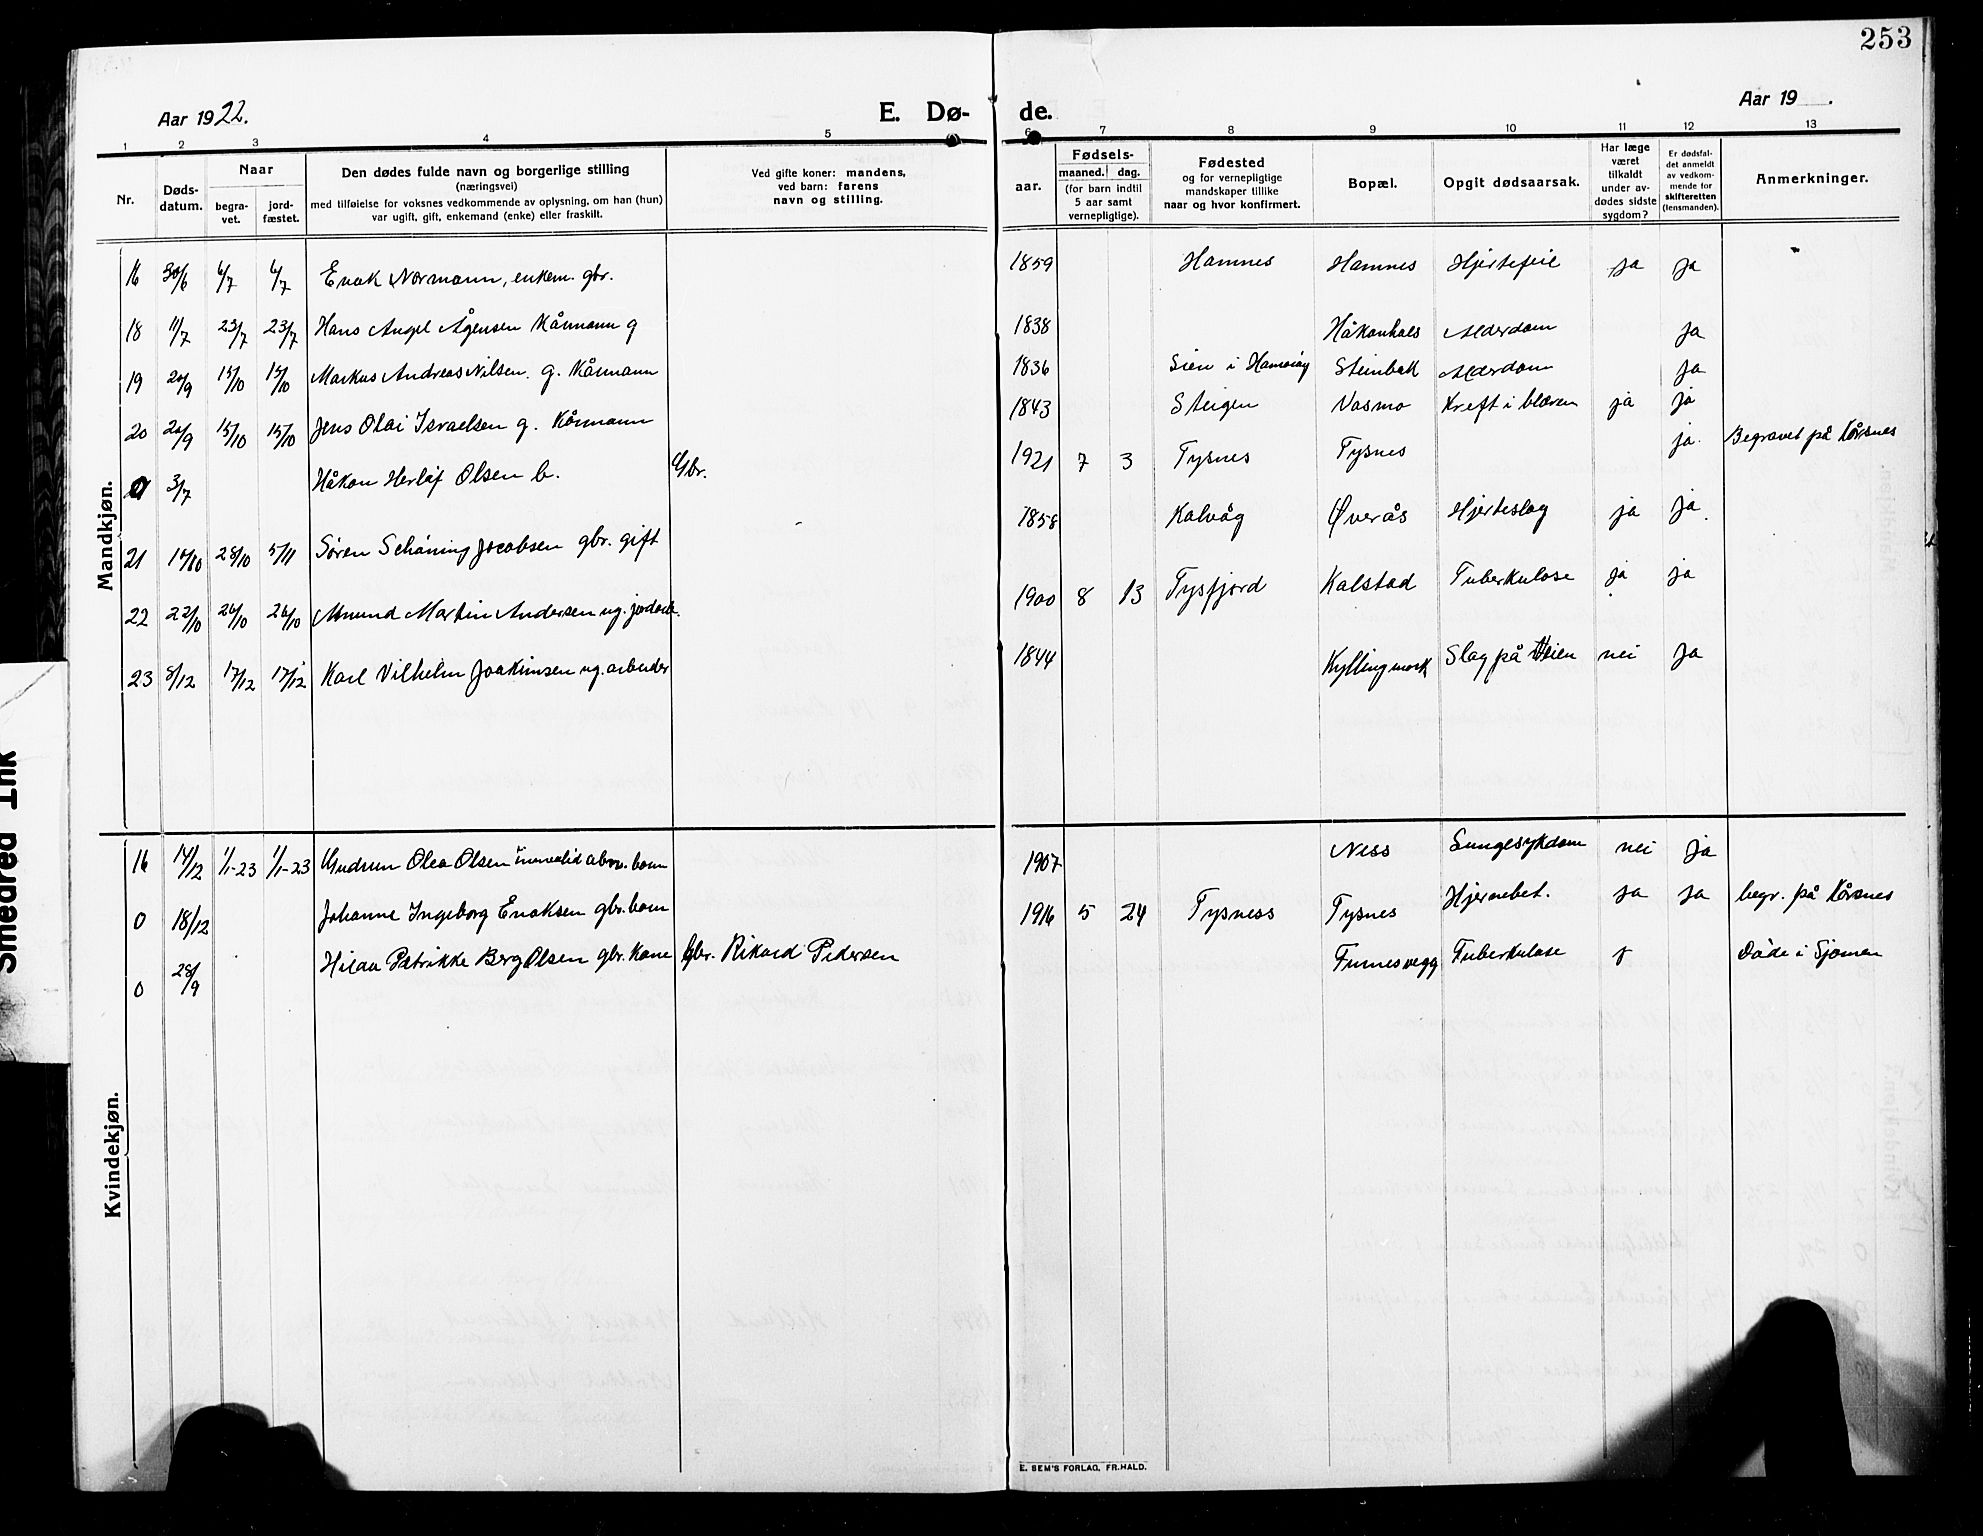 253
Aar 1922.
E. Dø-
de.
Aar 19 .
1 2 3 4 5 6 7 8 9 10 11 12 13
Nr.
Døds-
datum.
Naar
begra-
vet.
jord-
fæstet.
Den dødes fulde navn og borgerlige stilling
(næringsvei)
med tilføielse for voksnes vedkommende av oplysning, om han (hun)
var ugift, gift, enkemand (enke) eller fraskilt.
Ved gifte koner: mandens,
ved barn: farens
navn og stilling.
aar.
Fødsels-
maaned. dag.
(for barn indtil
5 aar samt
vernepligtige).
Fødested
og for vernepligtige
mandskaper tillike
naar og hvor konfirmert.
Bopæl.
Opgit dødsaarsak.
Har læge
været
tilkaldt
under av-
dødes sidste
sygdom?
Er dødsfal-
det anmeldt
av vedkom-
mende for
skifteretten
(lensmanden).
Anmerkninger.
Mandkjøn.
16 30/6 6/7 6/7 Enok Normann, enkem. gbr. 1859 Hamnes Hamnes Hjertefeil ja ja
18 11/7 23/7 23/7 Hans Angel Ågensen Kårmann g 1838 Håkonhals Alderdom ja
19 20/9 15/10 15/10 Markus Andreas Nilsen. g. Kårmann 1836 i Hamarøy Steinbak Alderdom ja
20 20/9 15/10 15/10 Jens Olai Israelsen g. Kårmann 1843 Steigen Vasmo Kreft i blæren ja ja
0 3/7 Håkon Herlof Olsen b. Gbr. 1921 7 3 Tysnes Tysnes ja. Begravet på Kårsnes
21 28/10 5/11 Søren Schåning Jacobsen gbr. gift 1858 Kalvåg Øverås Hjerteslag ja ja
22 22/10 26/10 26/10 Amund Martin Andersen ug. jordarb. 1900 8 13 Tysfjord Kalstad Tuberkulose ja ja
23 8/12 17/12 17/12 Karl Vilhelm Joakimsen ug. arbeider 1844 Kyllingmark Slag på Veien nei ja
Kvindekjøn.
16 14/12 1/1-23 1/1-23 Gudrun Olea Olsen barn 1907 Ness Lungesykdom nei ja
0 18/12 Johanne Ingeborg Enoksen gbr. barn 1916 5 24 Tysness Tysnes Hjernebet. ja ja begr. på Kårsnes
0 28/9 Hilda Petrikke Berg Olsen gbr. kone gbr. Rikard Pedersen Furnesvegg Tuberkulose j Døde i Sjomen
E. SEM'S FORLAG, FR.HALD.
Smedred Ink